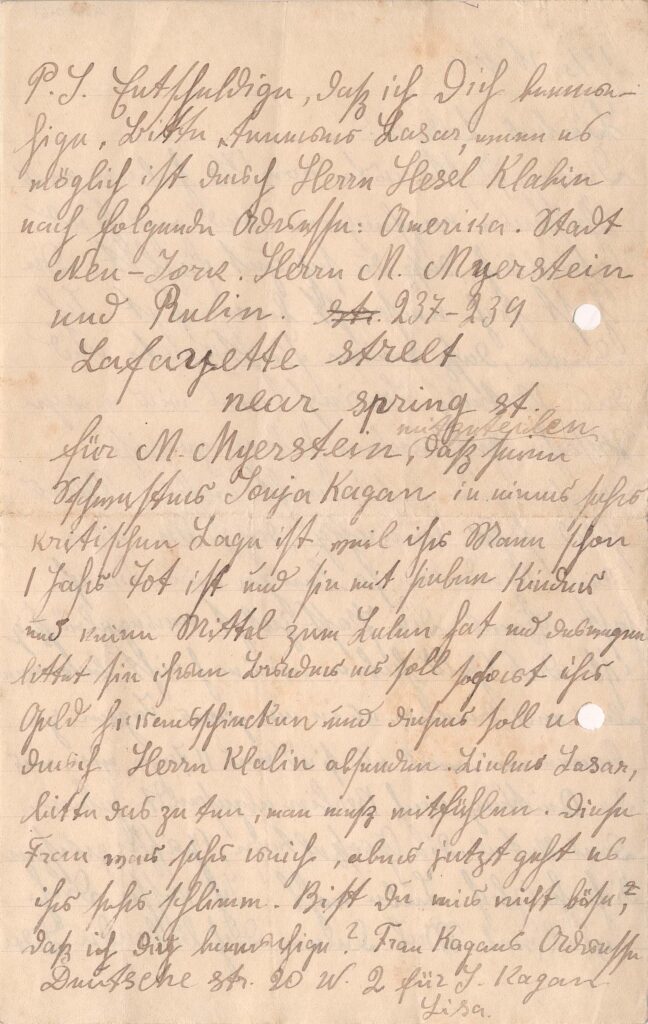 P. S. Entschuldige, daß ich Dich beunru-
hige. Bitte, teuerer Lasar, wenn es
möglich ist durch Herrn Hesel Klabin
nach folgende Adresse: Amerika. Stadt
Neu-York. Herrn M. Myerstein
und Rubin. str. 237-239
Lafayette street
near spring st.
mitzuteilen
für M. Myerstein, daß seine
Schwester Sonja Kagan in einer sehr
kritischen Lage ist, weil ihr Mann schon
1 Jahr tot ist und sie mit sieben Kinder
und keine Mittel zum Leben hat und deswegen
bittet sie ihren Bruder er soll sofort ihr
Geld herausschicken und dieses soll er
durch Herrn Klabin absenden. Lieber Lasar,
bitte das zu tun, man muß mitfühlen. Diese
Frau war sehr reich, aber jetzt geht es
ihr sehr schlimm. Bist du mir nicht böse,?
daß ich Dich beunruhige? Frau Kagans Adresse
Deutsche str. 20 W. 2 für S. Kagan
Lisa.